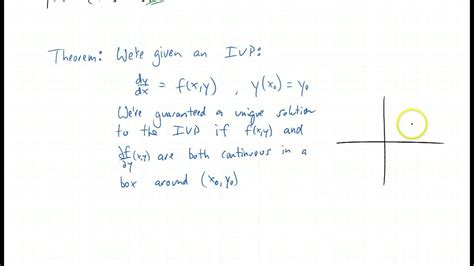 Theorem: We're given an IVP:
dy/dx = f(x,y) , y(x₀) = y₀
We're guaranteed a unique solution
to the IVP if f(x,y) and
∂f/∂y (x,y) are both continuous in a
box around (x₀, y₀)